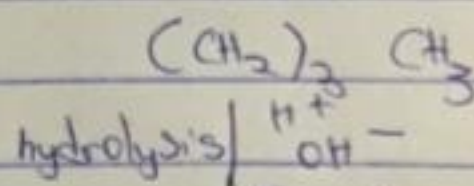 (CH₂)₃ CH₃
hydrolysis | H⁺
OH⁻